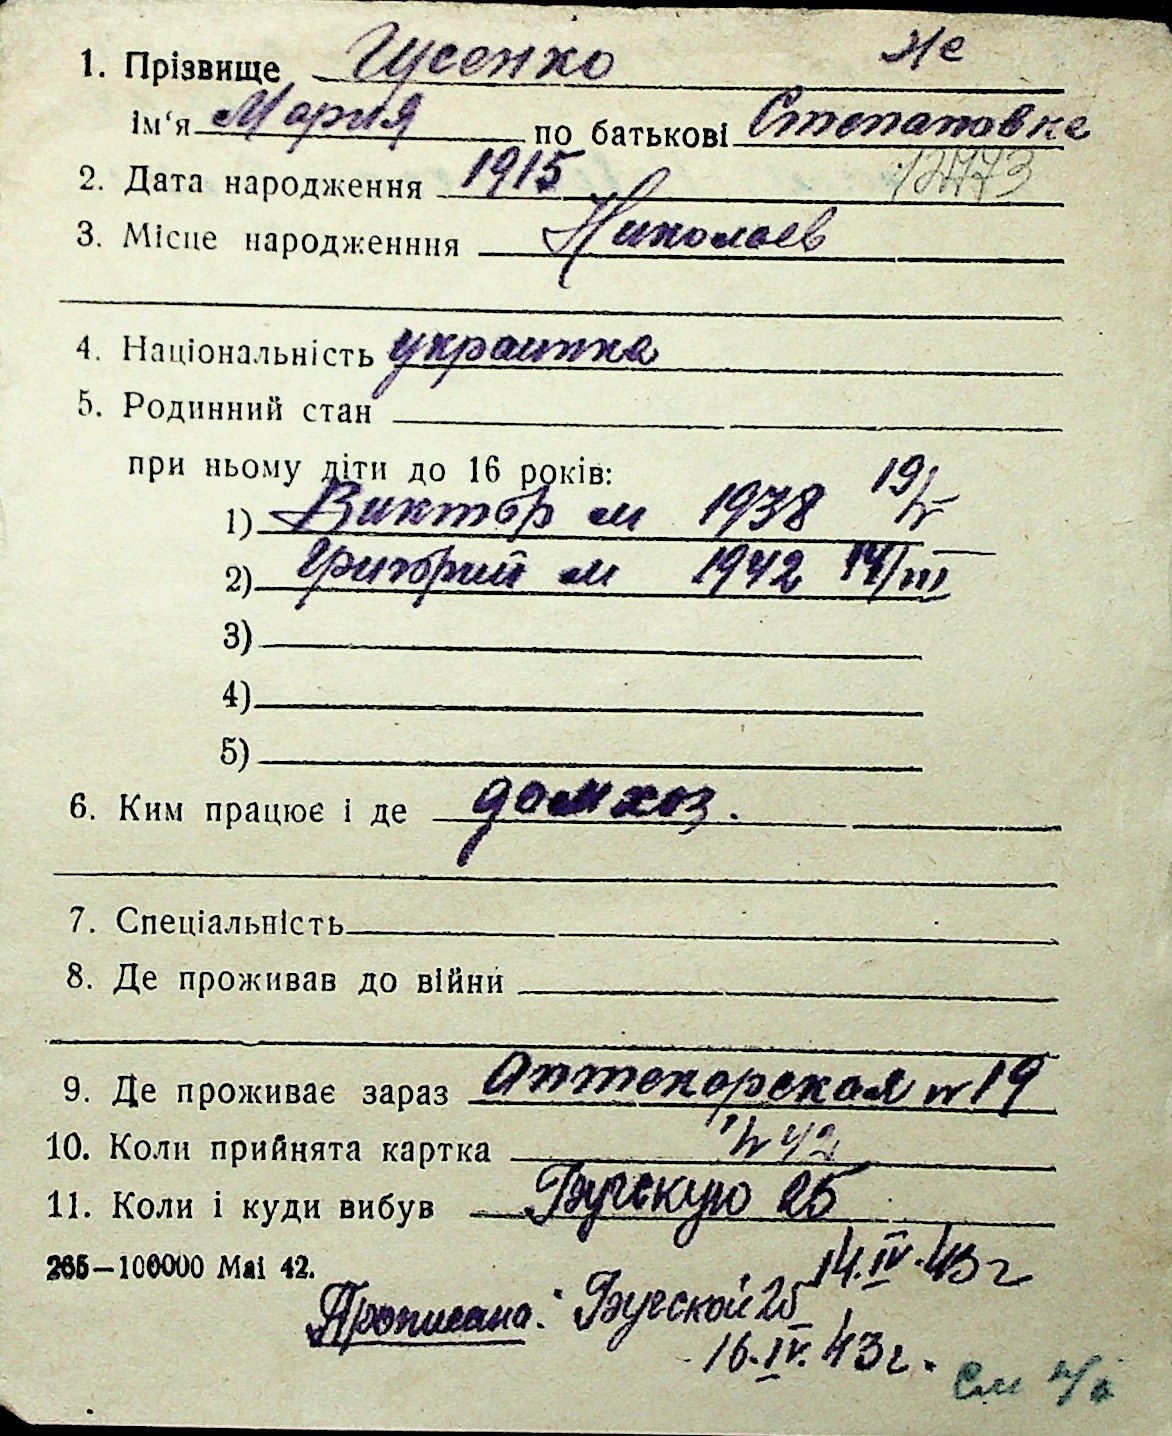 1. Прізвище Гусенко же
ім'я Мария по батькові Степановка
2. Дата народження 1915
3. Місце народженння Николаев
4. Національність украинка
5. Родинний стан
при ньому діти до 16 років:
1) Виктор м 1938 19/V
2) Григорий м 1942 14/III
3)
4)
5)
6. Ким працює і де домхоз.
7. Спеціальність
8. Де проживав до війни
9. Де проживає зараз Аптекарская № 19
10. Коли прийнята картка 42
11. Коли і куди вибув Бугскую 25
14.IV.43 г
265—100000 Маі 42.
Прописана: Бугской 25
16.IV.43 г.
См